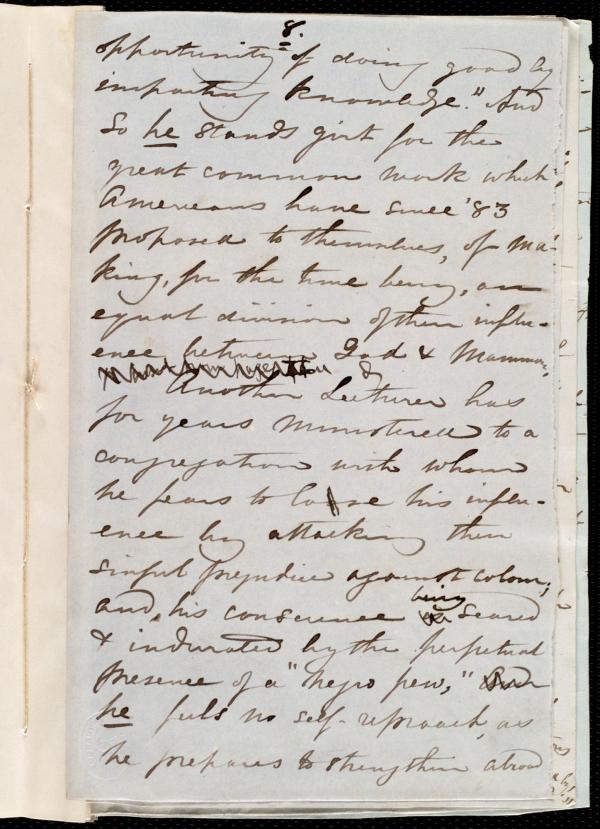 8.
opportunity of doing good by
imparting knowledge." And
so he stands girt for the
great common work which
Americans have since '83
proposed to themselves, of ma-
king, for the time being, an
equal division of their influ-
ence between God & Mammon,
Another Lecturer has
for years ministered to a
congregation with whom
he fears to loose his influ-
ence by attacking their
sinful prejudice against colour;
and, his conscience being seared
& indurated by the perpetual
presence of a "negro pew,"
he feels no self-reproach, as
he prepares to strengthen abroad